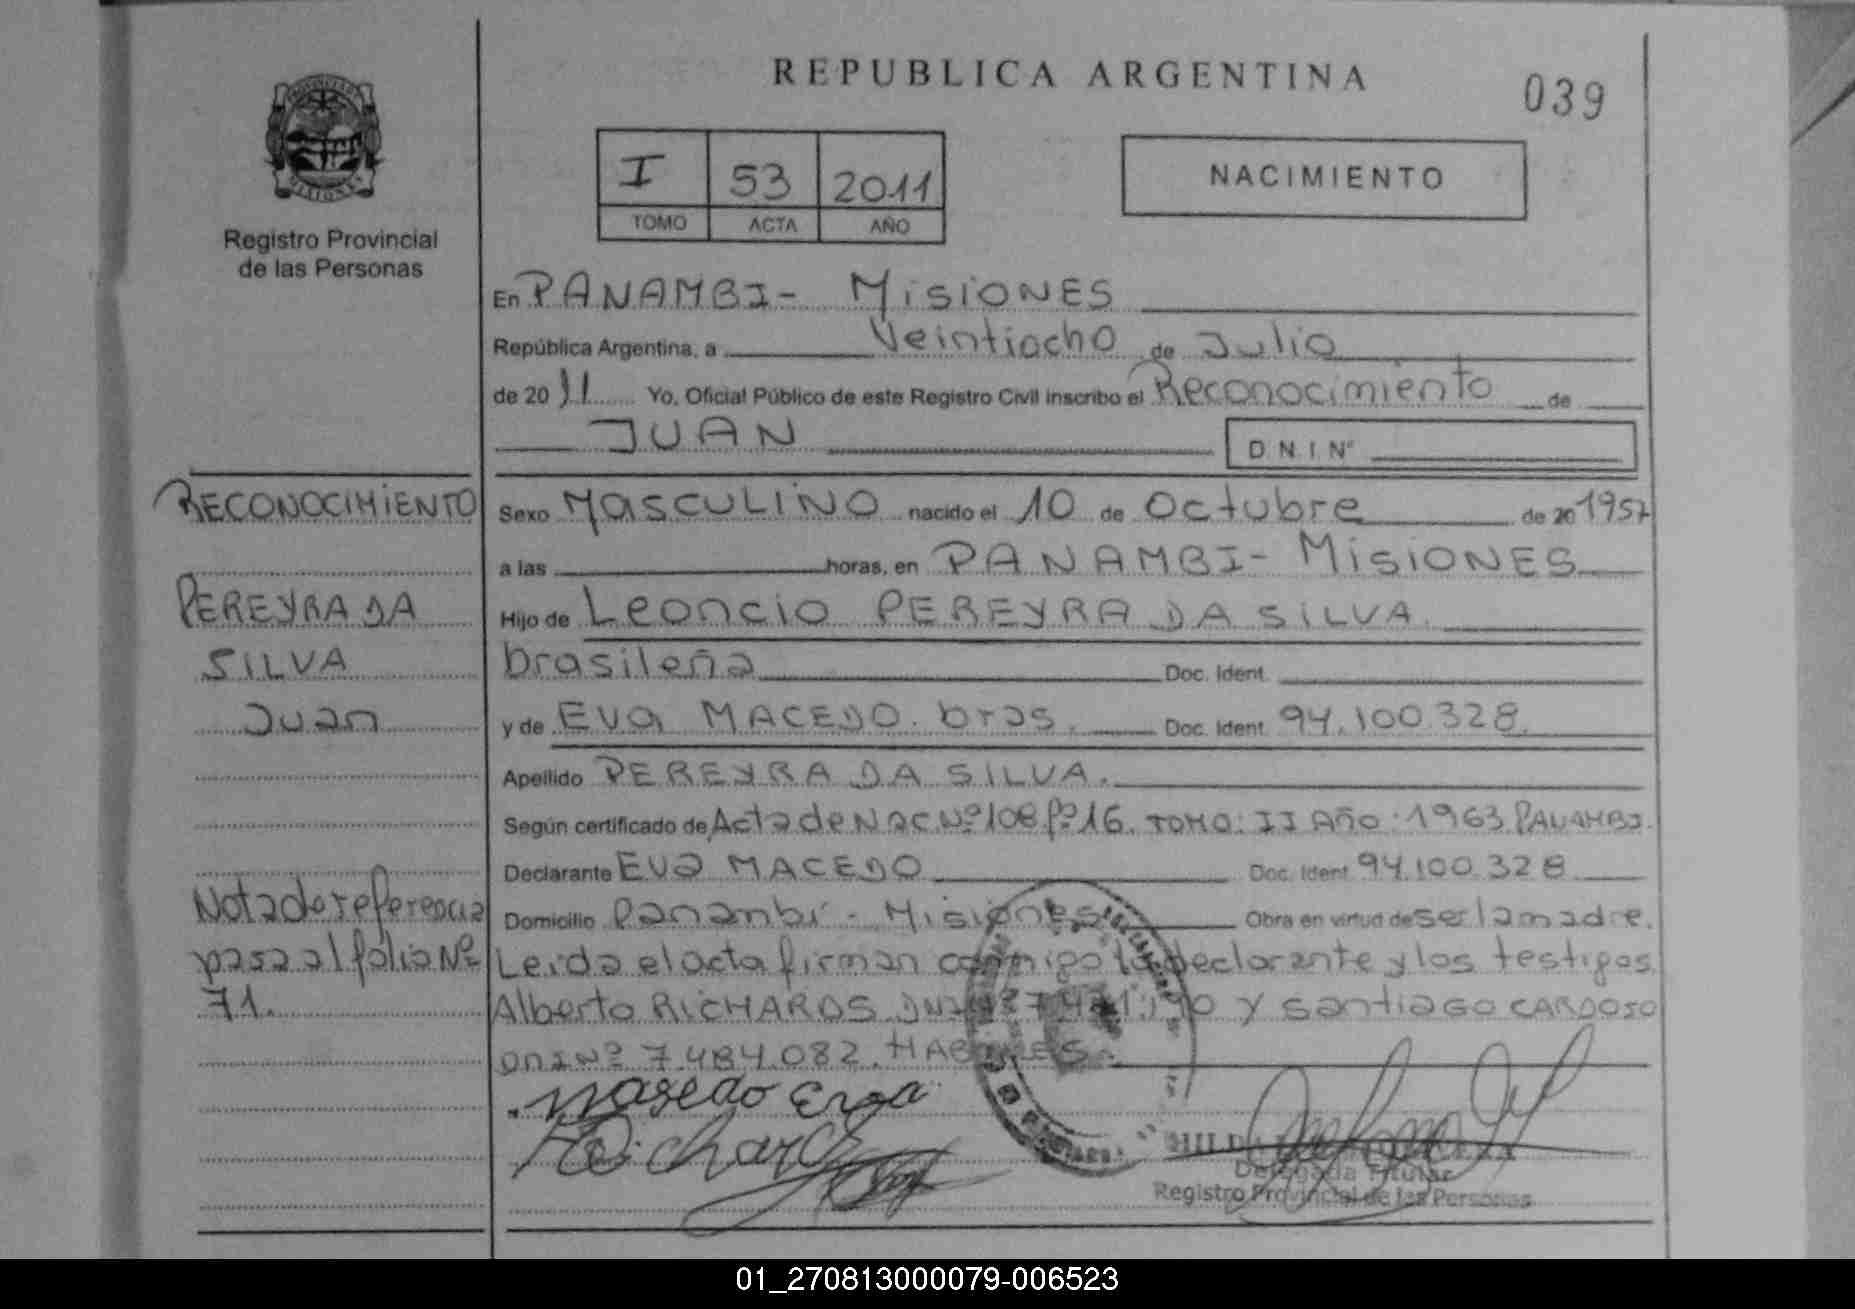 REPUBLICA ARGENTINA
039
PROVINCIA DE MISIONES
Registro Provincial
de las Personas
I 53 2011
TOMO ACTA AÑO
NACIMIENTO
En PANAMBI - MISIONES
República Argentina, a Veintiocho de Julio
de 20 11 Yo, Oficial Público de este Registro Civil inscribo el Reconocimiento de
JUAN D N I Nº
RECONOCIMIENTO
PEREYRA DA
SILVA
Juan
Nota de referencia
pasa al folio Nº
71.
Sexo MASCULINO nacido el 10 de Octubre de 20 1957
a las horas, en PANAMBI - MISIONES
Hijo de Leoncio PEREYRA DA SILVA.
brasileña Doc. Ident.
y de Eva MACEDO. bras. Doc. Ident. 94.100.328.
Apellido PEREYRA DA SILVA.
Según certificado de Acta de Nac. Nº 108 Fº 16. TOMO: II AÑO: 1963 PANAMBI.
Declarante Eva MACEDO Doc. Ident. 94.100.328
Domicilio Panambí - Misiones Obra en virtud de ser la madre.
Leida el acta firman conmigo la declarante y los testigos
Alberto RICHARDS DNI Nº 7. y Santiago CARDOSO
DNI Nº 7.484.082. HABILES.
Masedo Eva
Richard
Delegada Titular
Registro Provincial de las Personas
01_270813000079-006523